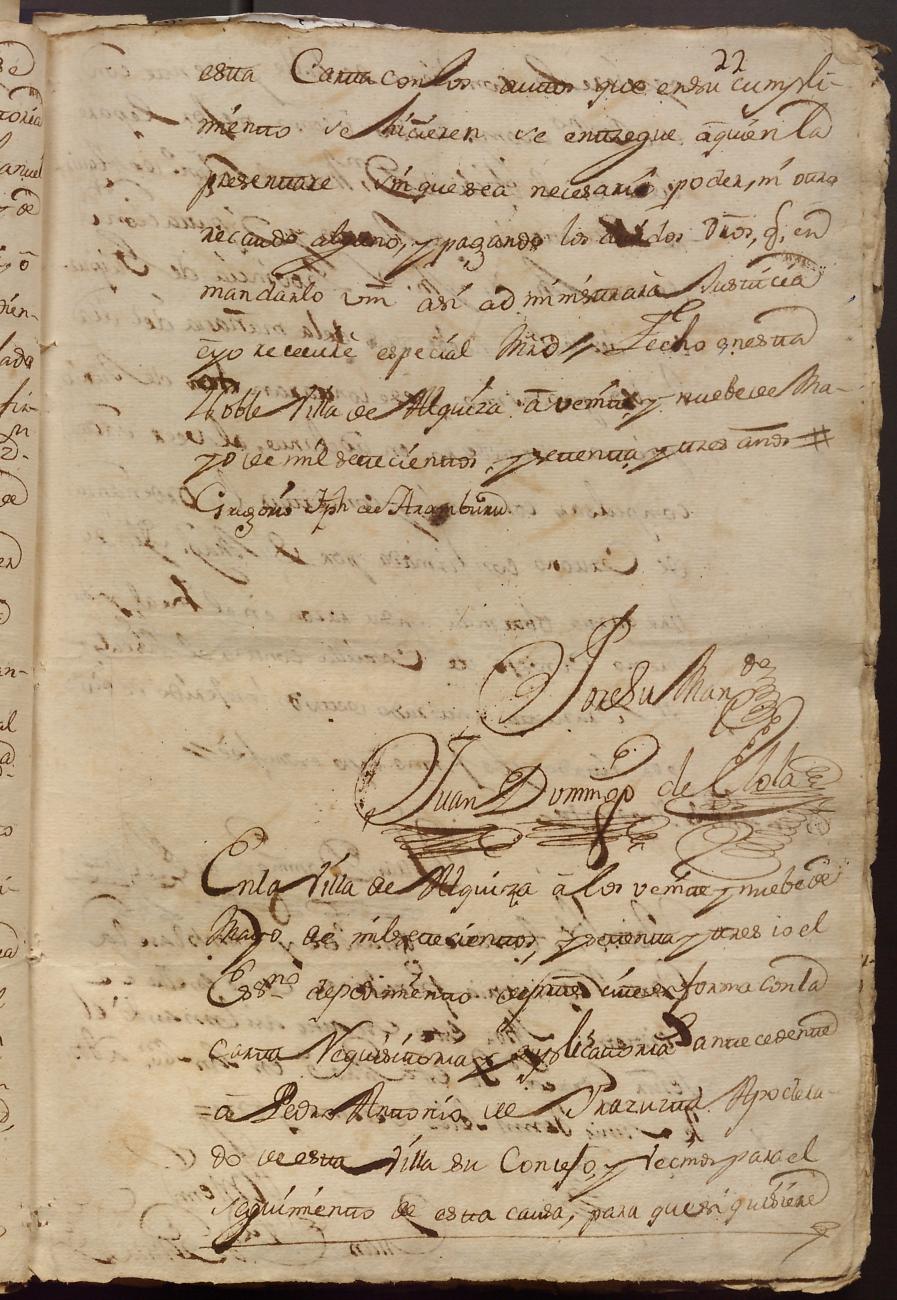 22
esta Carta con los autos que en su cumpli-
miento se hicieren se entregue a quien la
presentare sin que sea necesario poder, ni otro
recaudo alguno, y pagando los dros, q. en
mandarlo vm asi administrará Justicia
eyo recevire especial Mrd // Fecho en esta
Noble Villa de Alquiza a veinte y nuebe de Ma-
yo de mil setecientos, y setenta y tres años #
Grigorio Jph de Aramburu
Por su Man.do
Juan Domingo de Elola
En la Villa de Alquiza a los veinte y nuebe de
Mayo de mil setecientos, y setenta y tres io el
Ess.no de pedimiento de parte cite en forma con la
carta Requisitoria y suplicatoria antecedente
= a Pedro Antonio de Yrazuzta Apodera-
do de esta Villa su Concejo, y Vecinos para el
seguimiento de esta causa, para que si quisiere